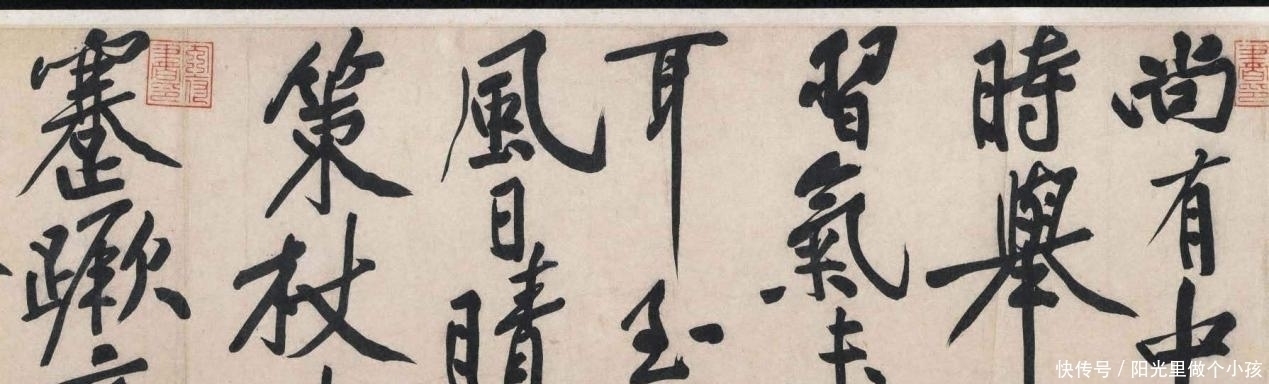 尚有中
時舉
習氣未
耳至
風日晴
策杖
蹇蹶
快传号 / 阳光里做个小孩